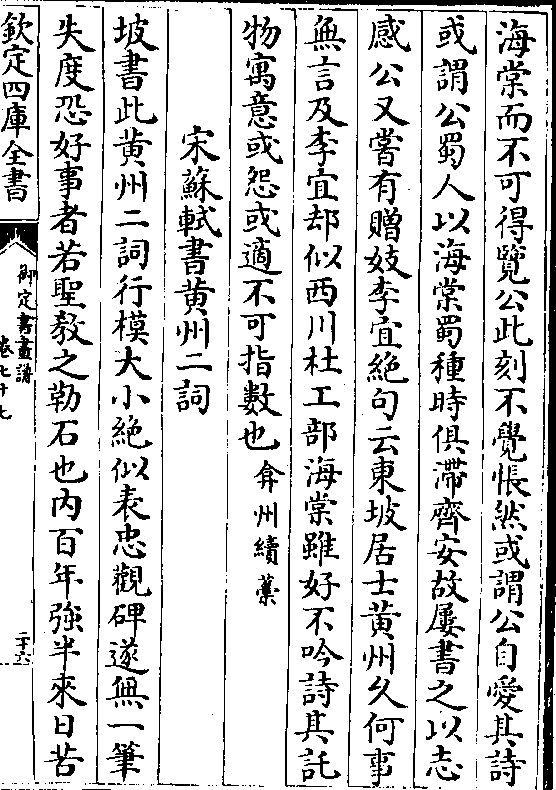 海棠而不可得覽公此刻不覺悵然或謂公自愛其詩
或謂公蜀人以海棠蜀種時俱滯齊安故屢書之以志
感公又嘗有贈妓李宜絶句云東坡居士黄州久何事
無言及李宜却似西川杜工部海棠雖好不吟詩其託
物寓意或怨或適不可指數也 弇州續藁
宋蘇軾書黄州二詞
坡書此黄州二詞行模大小絶似表忠觀碑遂無一筆
失度恐好事者若聖敎之勒石也内百年強半來日苦
欽定四庫全書
御定書畫譜
卷七十七
二十六